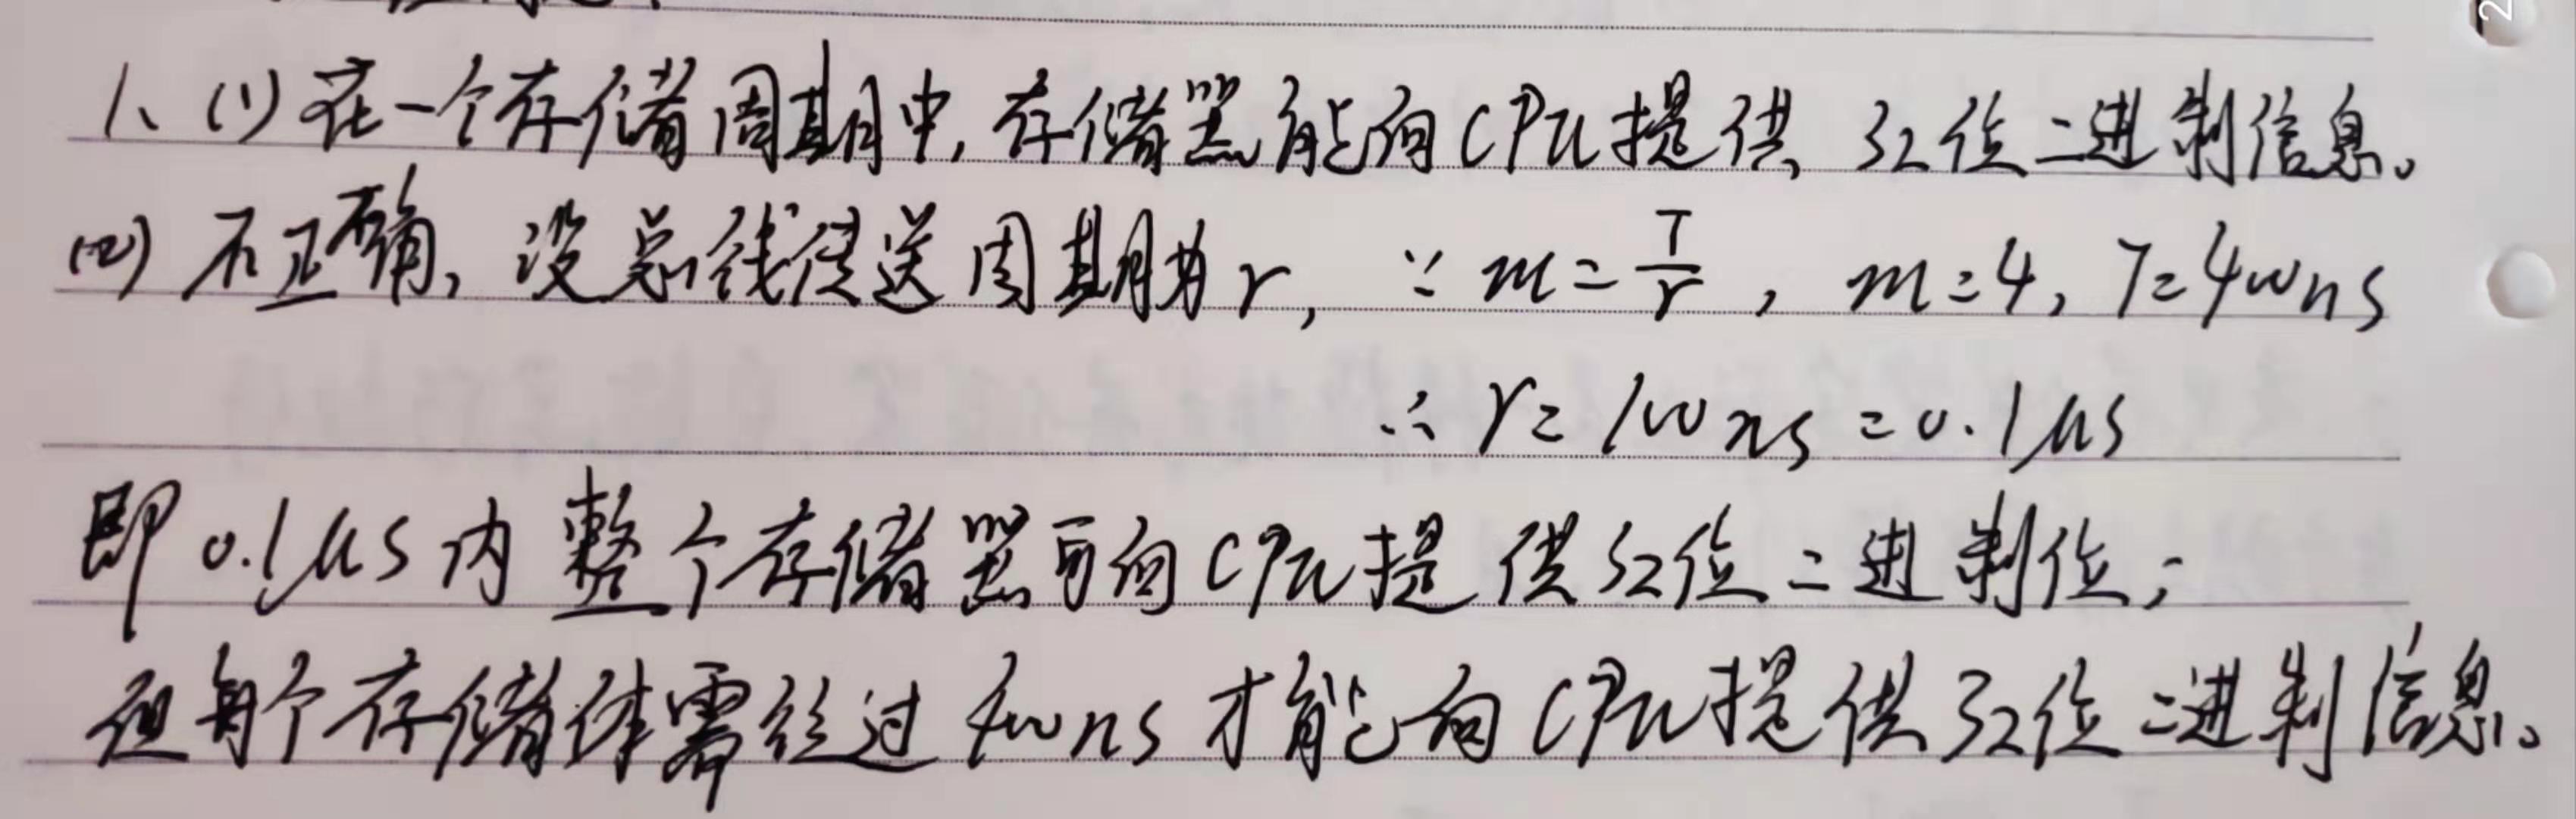 1、(1) 在一个存储周期中,存储器能向CPU提供 32位二进制信息。
(2) 不正确,设总线传送周期为r, ∵ m=T/r , m=4, T=400ns
∴ r=100ns=0.1μs
即0.1μs内整个存储器可向CPU提供32位二进制位;
但每个存储体需经过400ns才能向CPU提供32位二进制信息。